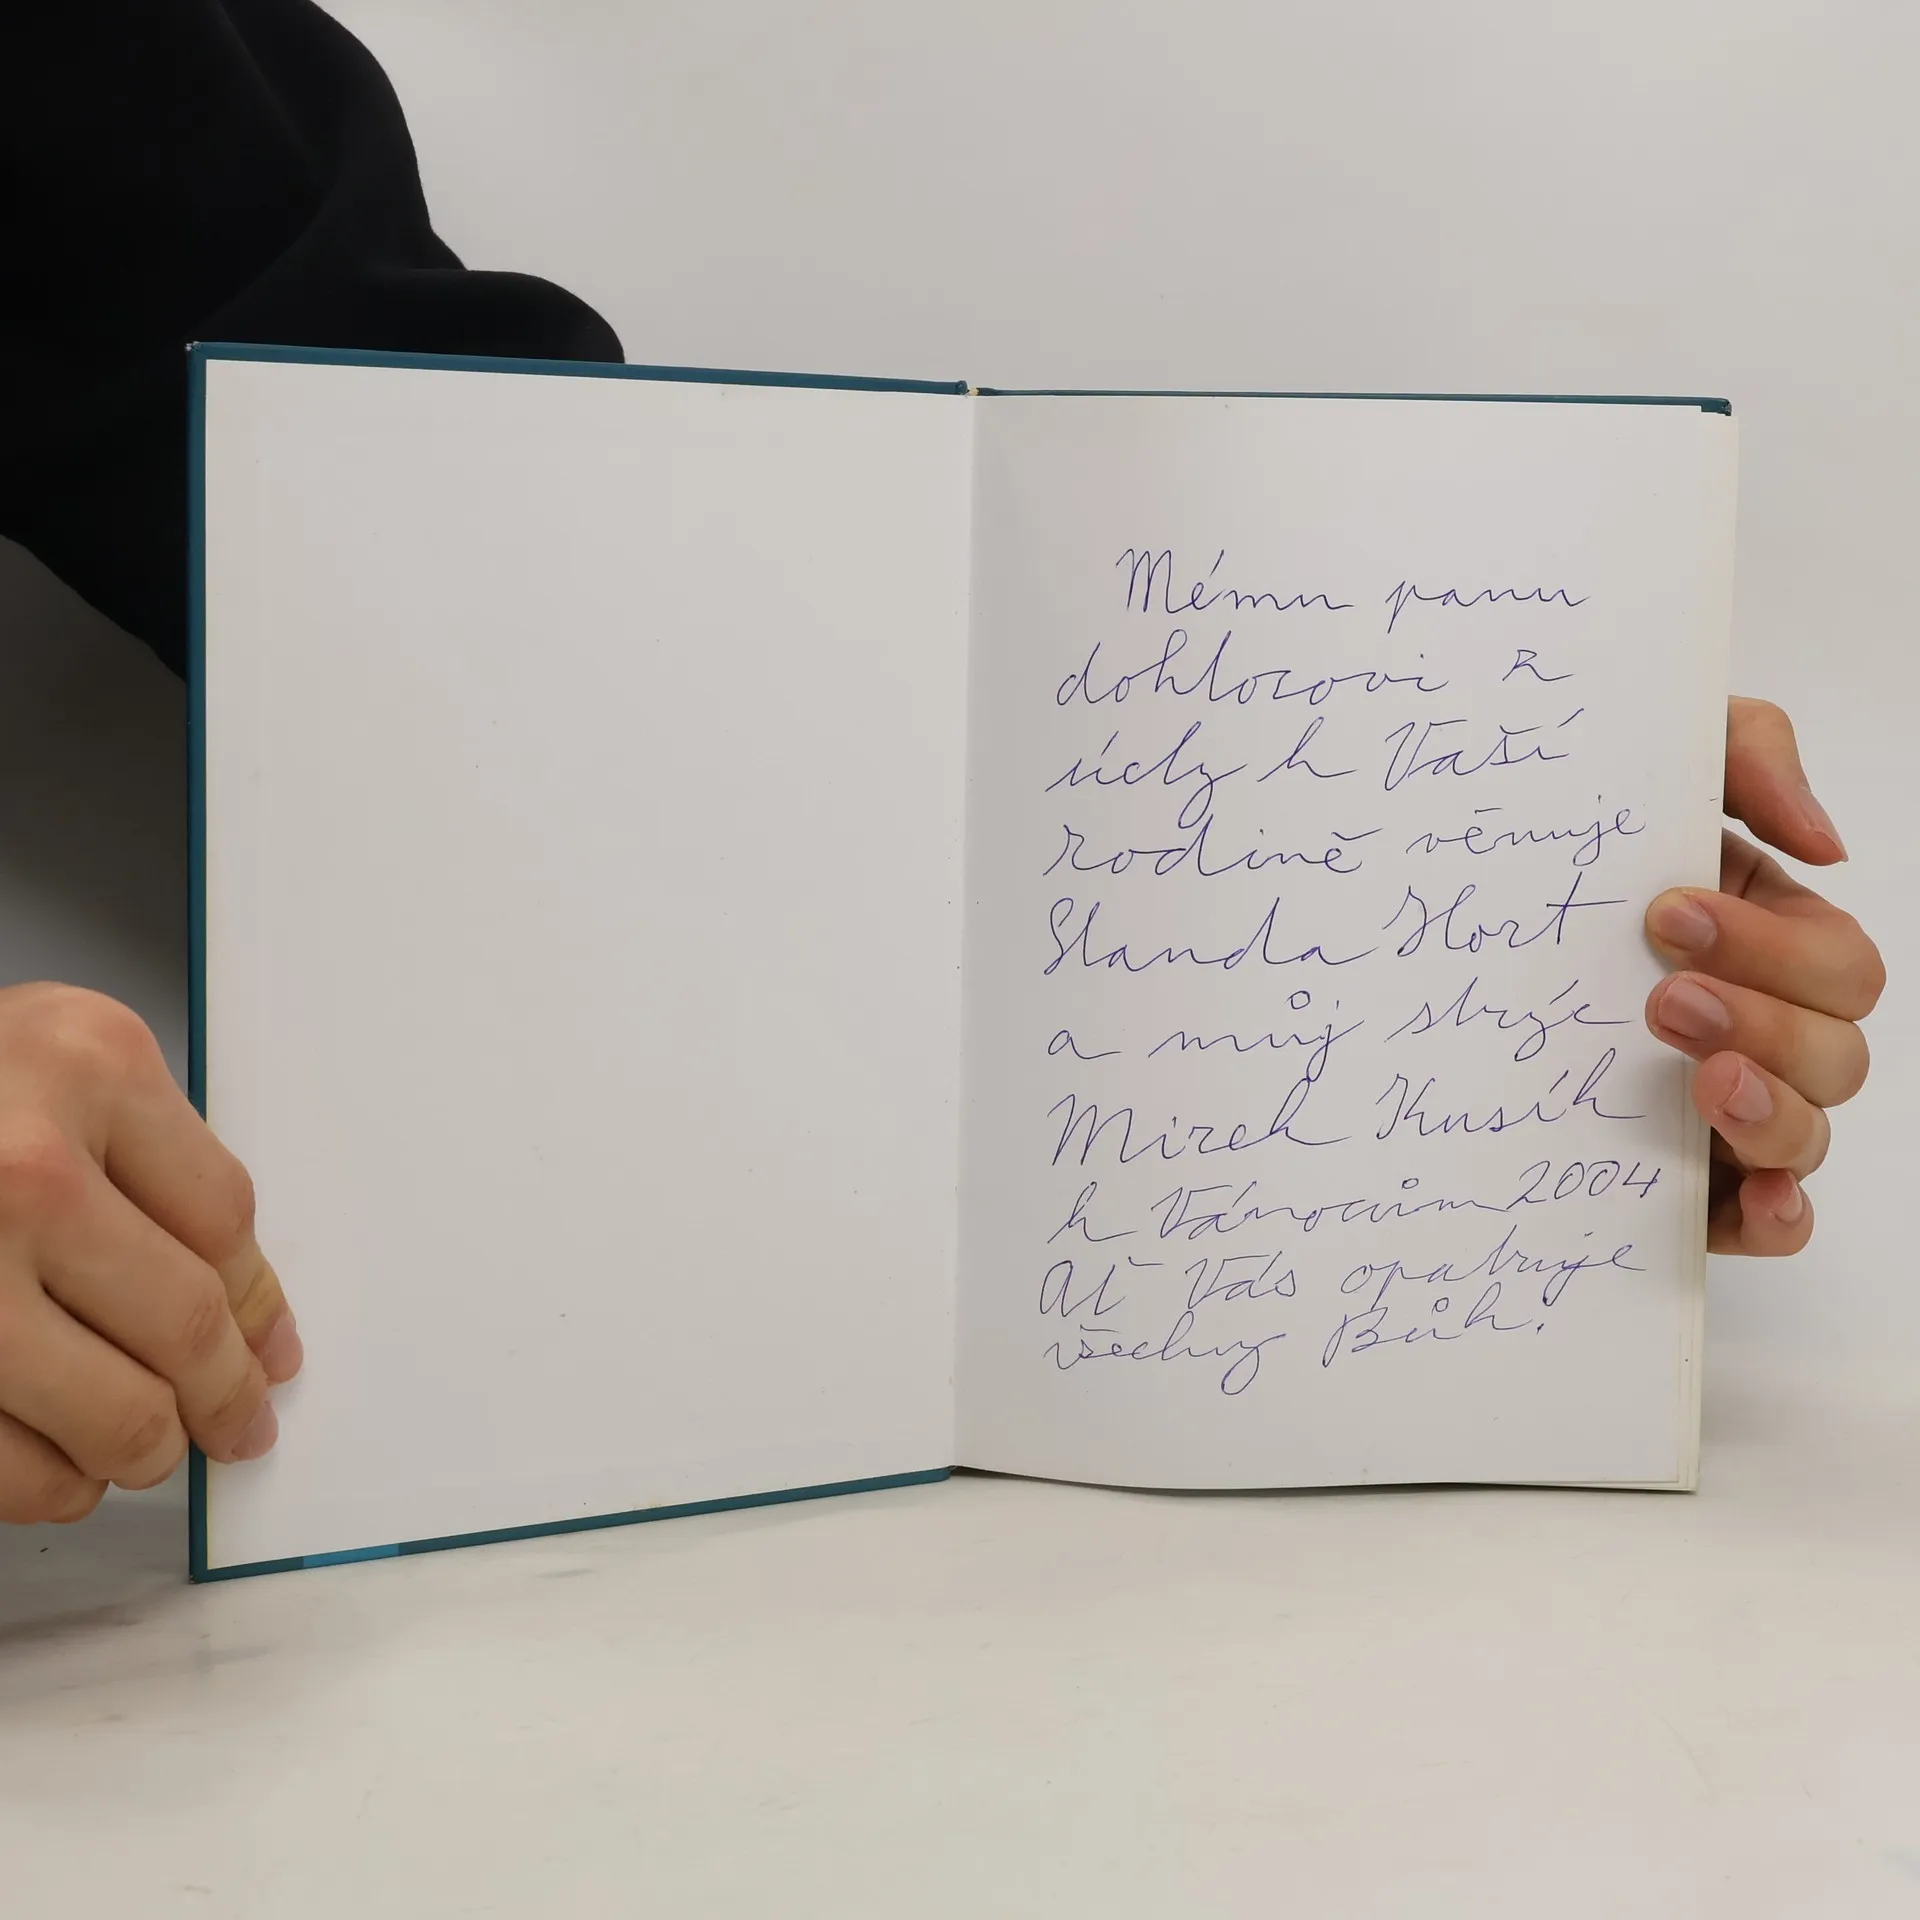 Mému panu
doktorovi z
úcty k Vaší
rodině věnuje
Standa Hort
a můj strýc
Mirek Kusík
k Vánocům 2004
Ať Vás opatruje
všechny Bůh.